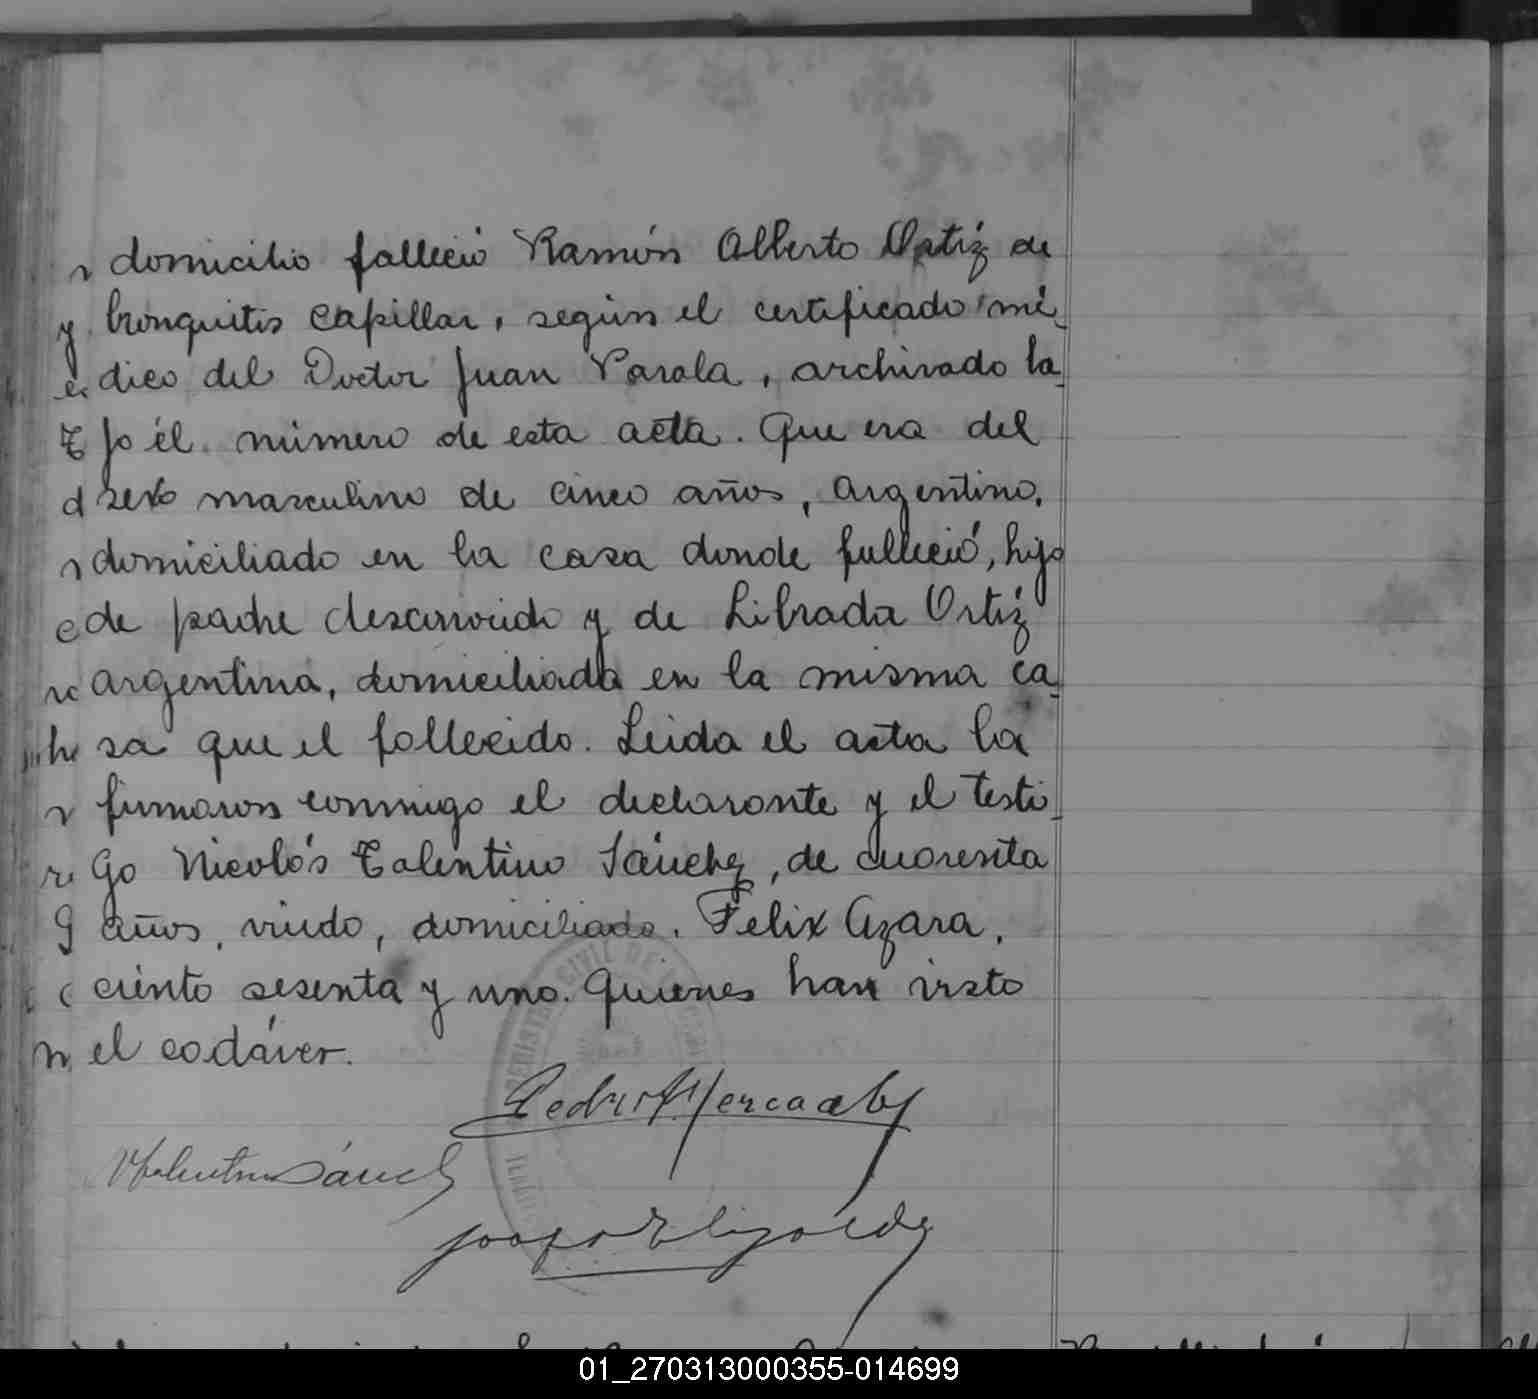 domicilio falleció Ramón Alberto Ortíz de
bronquitis capillar, según el certificado mé
dico del Doctor Juan Varala, archivado ba
jo él número de esta acta. Que era del
sexo masculino de cinco años, argentino,
domiciliado en la casa donde falleció, hijo
de padre desconocido y de Librada Ortíz
argentina, domiciliada en la misma ca
sa que el fallecido. Leida el acta la
firmaron conmigo el declarante y el testi
go Nicolás Tolentino Sánchez, de cuarenta
años, viudo, domiciliado. Felix Azara,
ciento sesenta y uno. Quienes han visto
el cadáver.
01_270313000355-014699